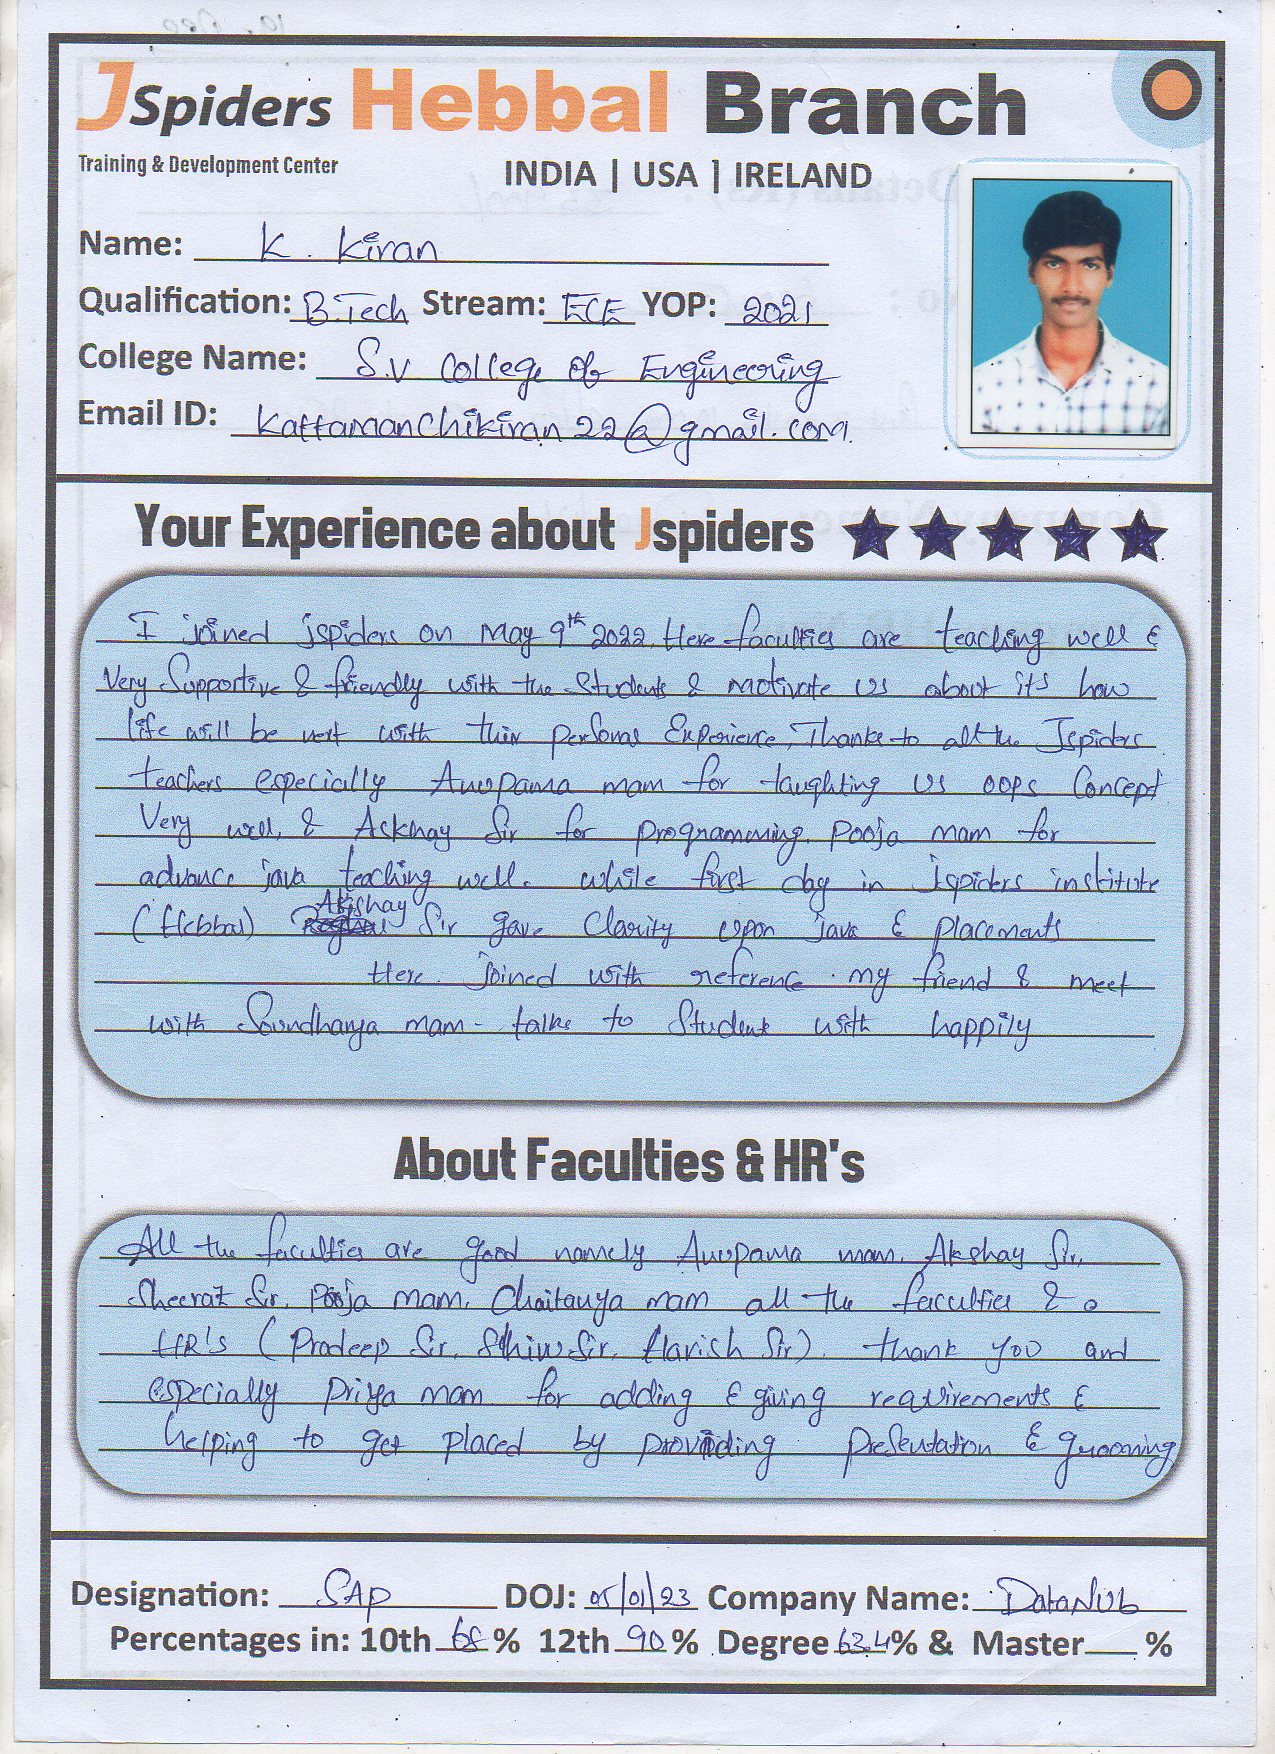 JSpiders Hebbal Branch
Training & Development Center
INDIA | USA | IRELAND
Name: K. Kiran
Qualification: B.Tech Stream: ECE YOP: 2021
College Name: S.V College of Engineering
Email ID: kattamanchikiran22@gmail.com
Your Experience about Jspiders
I joined jspiders on May 9th 2022. Here faculties are teaching well &
Very Supportive & friendly with the Students & motivate us about its how
life will be next with thier personal Experience, Thanks to all the Jspiders
teachers especially Anupama mam for taughting us oops Concept
Very well, & Ackhay Sir for programming. pooja mam for
advance java teaching well. while first day in Jspiders institute
(Hebbal) Akshay Sir gave Clarity upon java & placements
Here. joined with reference. my friend & meet
with Soundharya mam - talks to Students with happily
About Faculties & HR's
All the faculties are good namely Anupama mam. Akshay Sir,
Sheeraz Sir, Pooja mam, Chaitanya mam all the faculties &
HR's (Pradeep Sir, Sir, Harish Sir). thank you and
especially Priya mam for adding & giving requirements &
helping to get placed by providing presentation & grooming
Designation: SAP DOJ: 05/01/23 Company Name: DataNub
Percentages in: 10th 68 % 12th 90 % Degree 63.4% & Master %